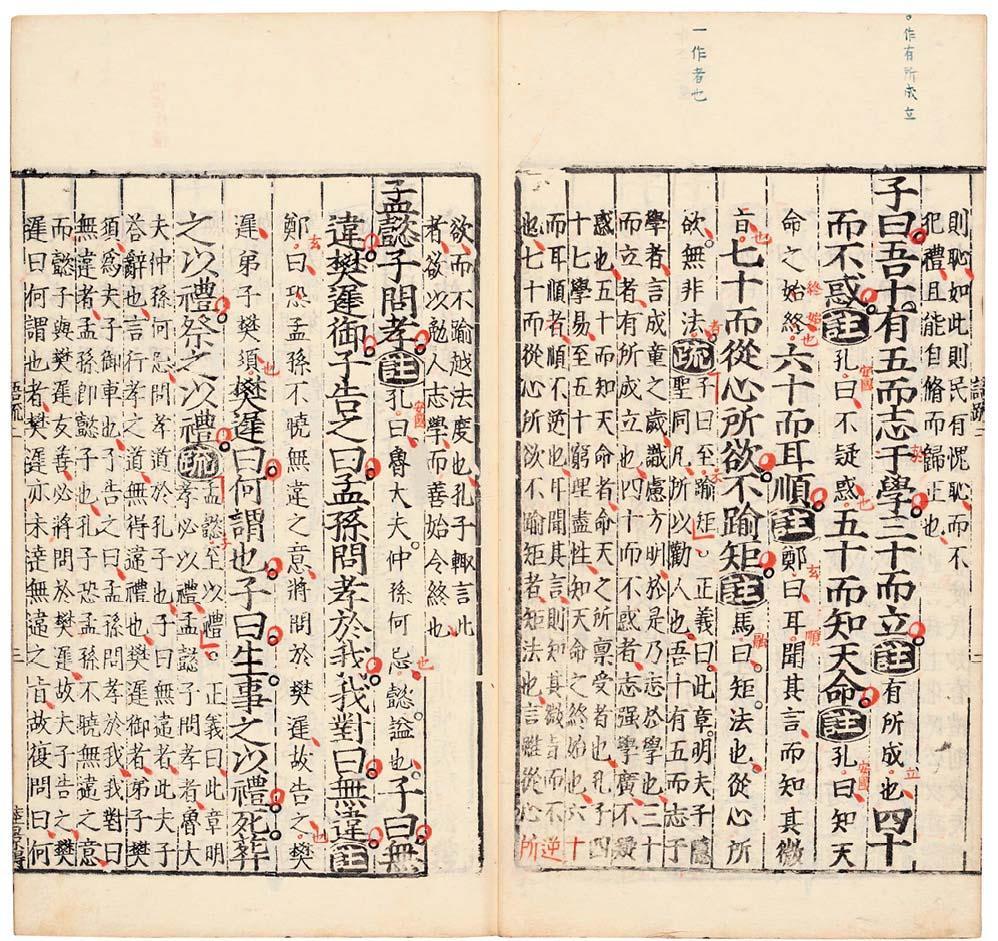 作有所成立
一作者也
則恥如此則民有愧恥而不
犯禮且能自脩而歸正也
子曰吾十有五而志于學三十而立註有所成也四十
立
而不惑註孔曰不疑惑五十而知天命註孔曰知天
安國
也
安國
命之始終六十而耳順註鄭曰耳聞其言而知其微
終始也
玄
順
旨七十而從心所欲不踰矩註馬曰矩法也從心所
也
融
欲無非法疏子曰至踰矩。正義曰此章明夫子隱
者
聖同凡所以勸人也吾十有五而志于
學者言成童之歲識慮方明於是乃志於學也三十
而立者有所成立也四十而不惑者志强學廣不疑
惑也五十而知天命者命天之所稟受者也孔子四
十七學易至五十窮理盡性知天命之終始也六十
而耳順者順不逆也耳聞其言則知其微旨而不逆
也七十而從心所欲不踰矩者矩法也言雖從心所
欲而不踰越法度也孔子輒言此
者欲以勉人志學而善始令終也
孟懿子問孝註孔曰魯大夫仲孫何忌懿謚也子曰無
安國
也
違樊遲御子告之曰孟孫問孝於我我對曰無違註
鄭曰恐孟孫不曉無違之意將問於樊遲故告之樊
玄
也
遲弟子樊須樊遲曰何謂也子曰生事之以禮死葬
也
之以禮祭之以禮疏孟懿至以禮。正義曰此章明
子
孝必以禮孟懿子問孝者魯大
夫仲孫何忌問孝道於孔子也子曰無違者此夫子
荅辭也言行孝之道無得違禮也樊遲御者弟子樊
須爲夫子御車也子告之曰孟孫問孝於我我對曰
無違者孟孫即懿子也孔子恐孟孫不曉無違之意
而懿子與樊遲友善必將問於樊遲故夫子告之樊
遲曰何謂也者樊遲亦未達無違之旨故復問曰何